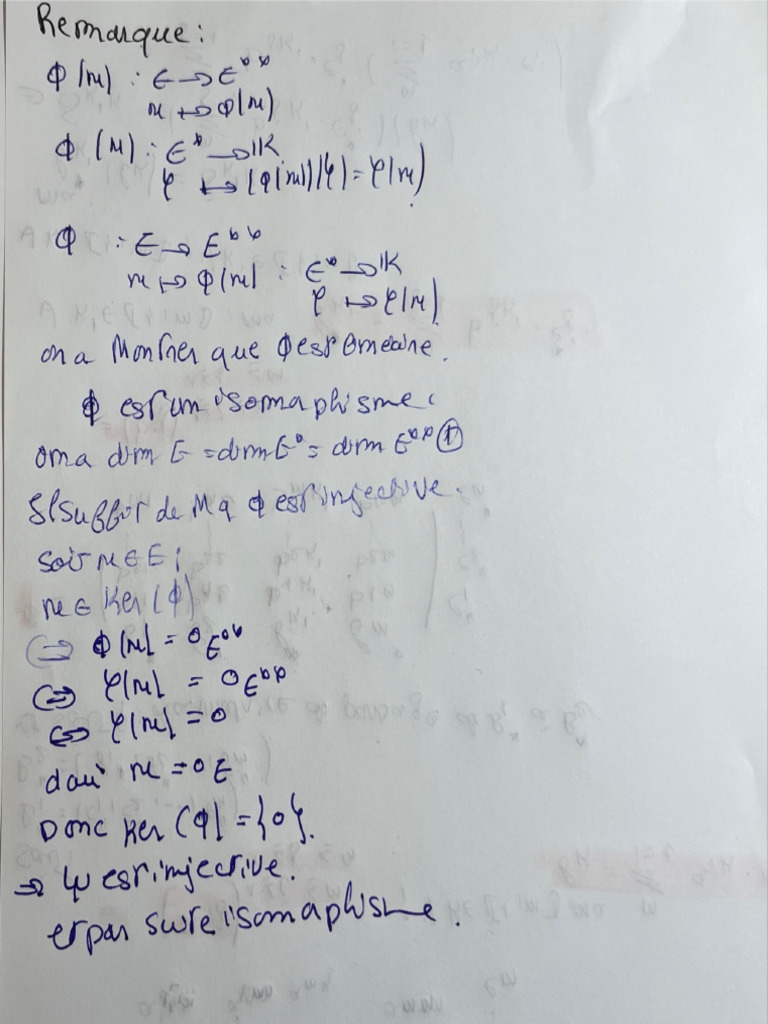 Remarque :
Φ(x) : E → E**
x ↦ Φ(x)
Φ(x) : E* → IK
φ ↦ (Φ(x))(φ) = φ(x)
Φ : E → E**
x ↦ Φ(x) : E* → IK
φ ↦ φ(x)
on a Montrer que Φ est linéaire.
Φ est un isomorphisme.
on a dim E = dim E* = dim E** ①
Il suffit de Mq Φ est injective.
Soit x ∈ E ;
x ∈ Ker (Φ)
⇔ Φ(x) = 0E**
⇔ φ(x) = 0E**
⇔ φ(x) = 0
d'où x = 0E
Donc Ker (Φ) = {0}.
⇒ φ est injective.
et par suite isomorphisme.